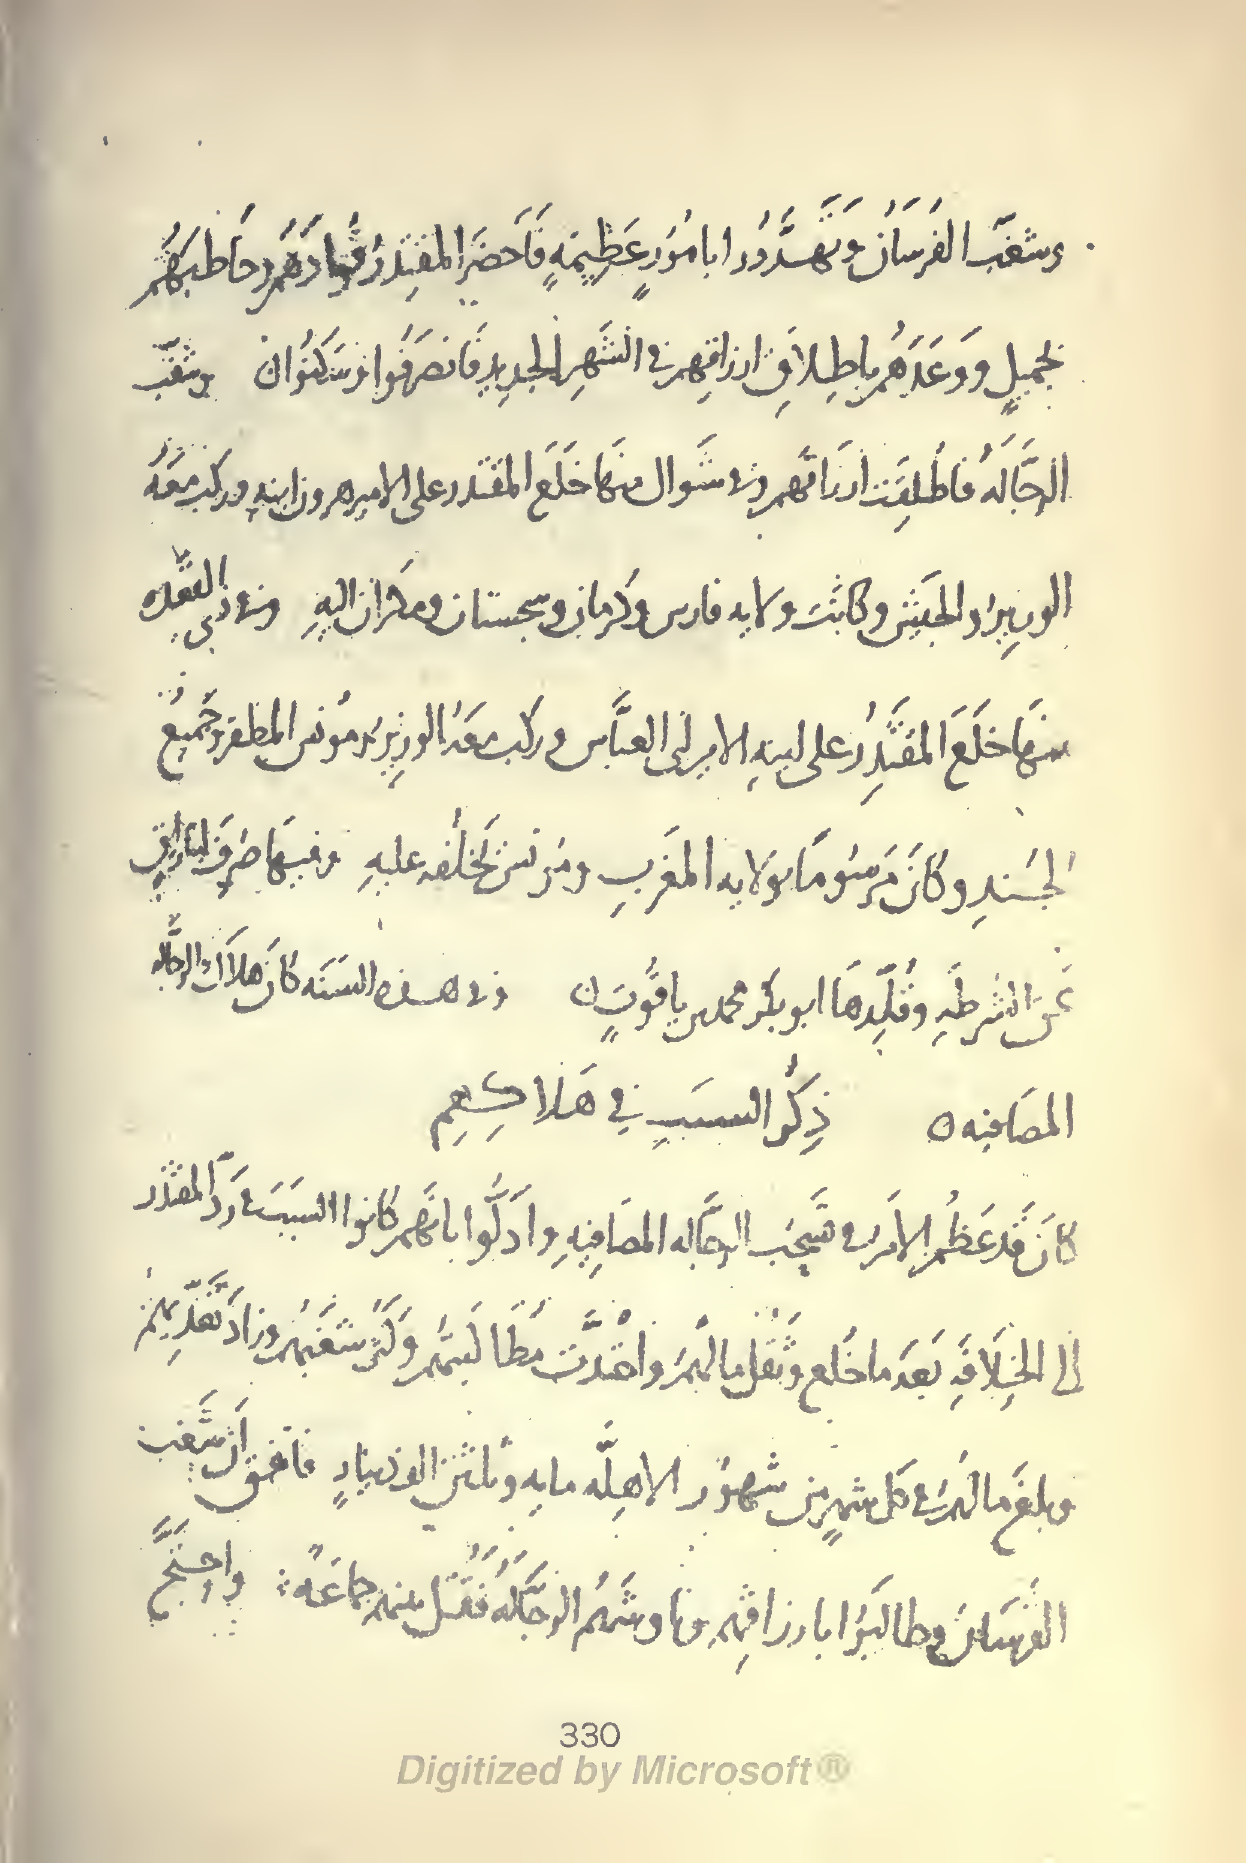 وشغب الفرسان وتهددوا بامور عظيمة فاحضر المقتدر قوادهم وخاطبهم
بجميل ووعدهم باطلاق ارزاقهم في الشهر الجديد فانصرفوا وسكنوا ن وشغب
الرجاله فاطلقت ارزاقهم وفى شوال منها خلع المقتدر على الامير هرون ابنه وركب معه
الوزير والجيش وكانت ولايه فارس وكرمان وسجستان ومكران اليه وفى ذي القعده
منها خلع المقتدر على ابنه الامير ابى العباس وركب معه الوزير ومونس المظفر وجميع
الجند وكان مرسوما بولايه المغرب ومونس يخلفه عليه وفيها صرف ابنا رايق
عن الشرطه وقلدها ابو بكر محمد بن ياقوت ن وفى هذه السنه كان هلاك الرجاله
المصافيه ه ذكر السبب في هلاكهم
كان قد عظم الامر فى تسحب الرجاله المصافيه وادلوا بانهم كانوا السبب فى رد المقتدر
الى الخلافه بعد ما خلع وثقل مالهم واشتدت مطالبتهم وكثر شغبهم وزاد تعديهم
وبلغ مالهم فى كل شهر من شهور الاهله مايه وثلثين الف دينار فاتفق ان شغب
الفرسان وطالبوا بارزاقهم وناوشهم الرجاله فقتل منهم جماعه واحتج
330
Digitized by Microsoft®